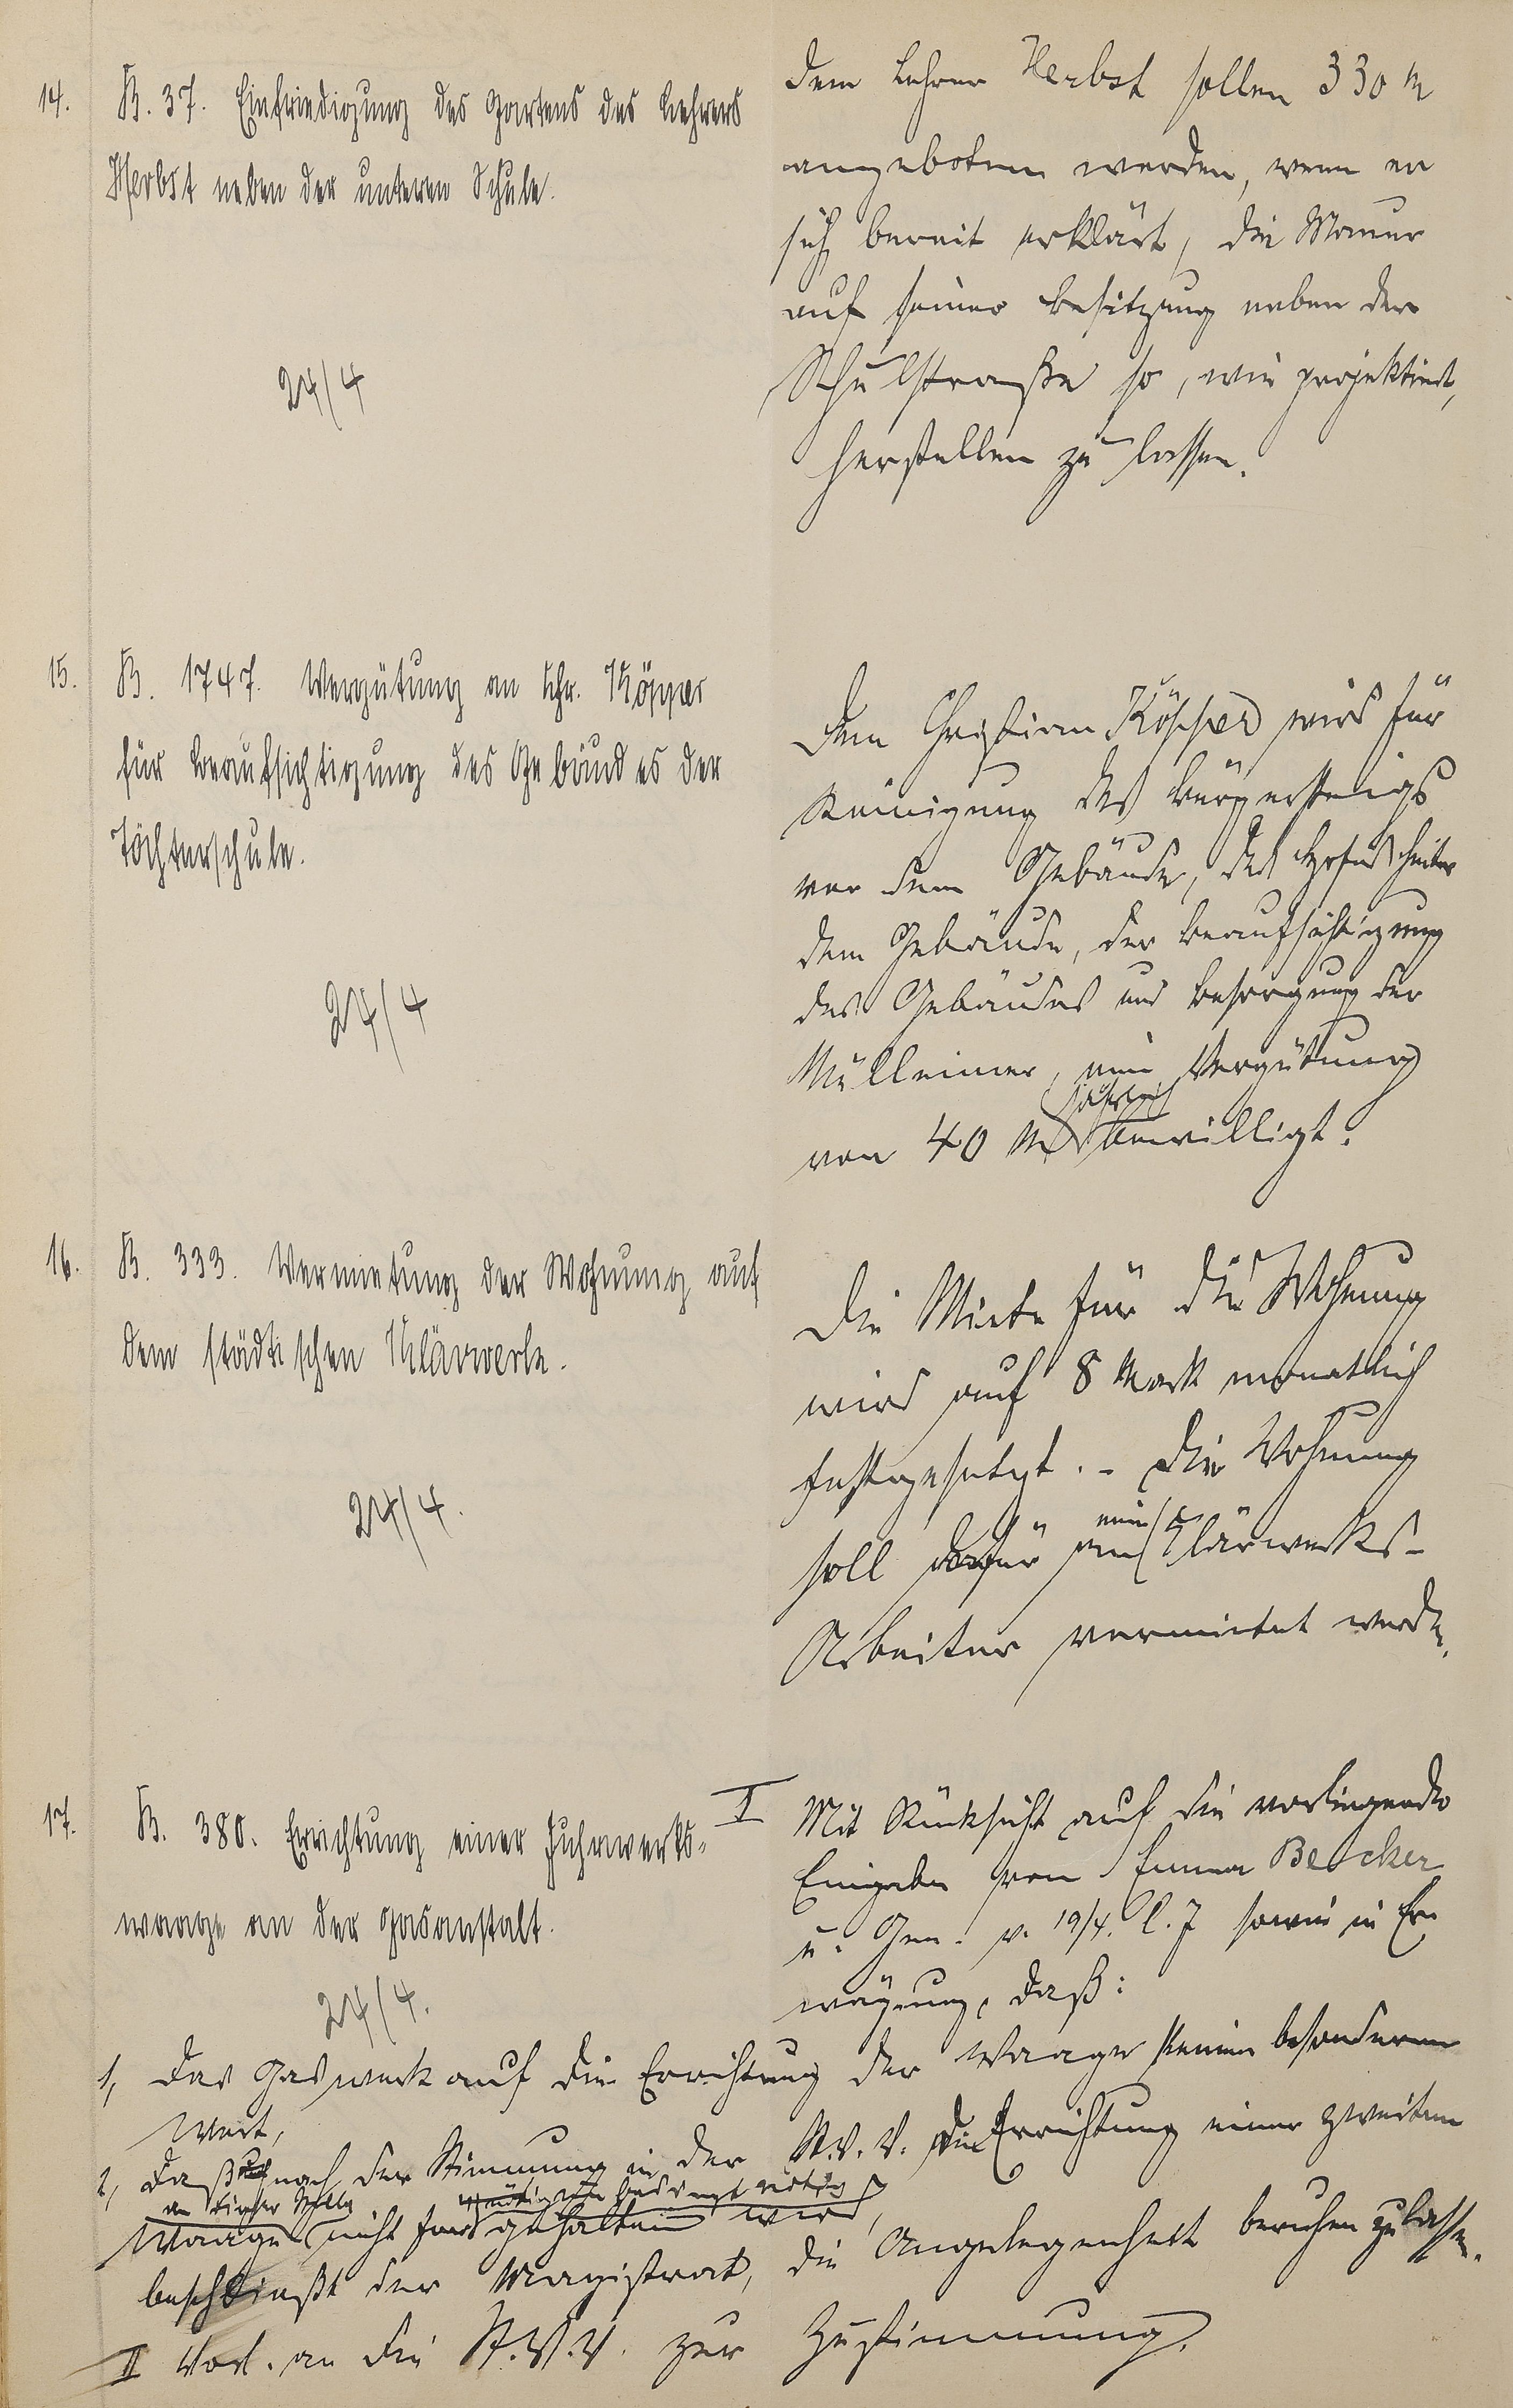 14. B. 37. Einfriedigung des Gartens des Lehrers
Herbst neben der unteren Schule.
24/4
Dem Lehrer Herbst sollen 330 M
angeboten werden, wenn er
sich bereit erklärt, die Mauer
auf seiner Besitzung neben der
Schulstraße so, wie projektiert,
herstellen zu lassen.
15. B. 1747. Vergütung an Chr. Köpper
für Beaufsichtigung des Gebäudes der
Töchterschule.
24/4
Dem Christian Köpper wird für
Reinigung des Bürgersteigs
vor dem Gebäude, des Hofes hinter
dem Gebäude, der Beaufsichtigung
des Gebäudes und Besorgung der
Mülleimer, eine Vergütung
jährlich
von 40 M bewilligt.
16. B. 333. Vermietung der Wohnung auf
dem städtischen Klärwerk.
24/4.
Die Miete für die Wohnung
wird auf 8 Mark monatlich
festgesetzt. - Die Wohnung
einen
soll dafür an Klärwerks-
Arbeiter vermietet werden.
17. B. 380. Errichtung einer Fuhrwerks-
waage an der Gasanstalt.
24/4.
I Mit Rücksicht auf die vorliegende
Eingabe von Emma Becker
u. Gen. v. 19/4. l. J sowie in Er
wägung, daß:
1, das Gaswerk auf die Errichtung der Waage keinen besonderen
Wert,
2, daß nach der Stimmung in der St.V.V. die Errichtung einer zweiten
an dieser Stelle nötig
Waage nicht für gehalten wird,
beschließt der Magistrat, die Angelegenheit beruhen zu lassen.
II Vorl. an die St.V.V. zur Zustimmung.